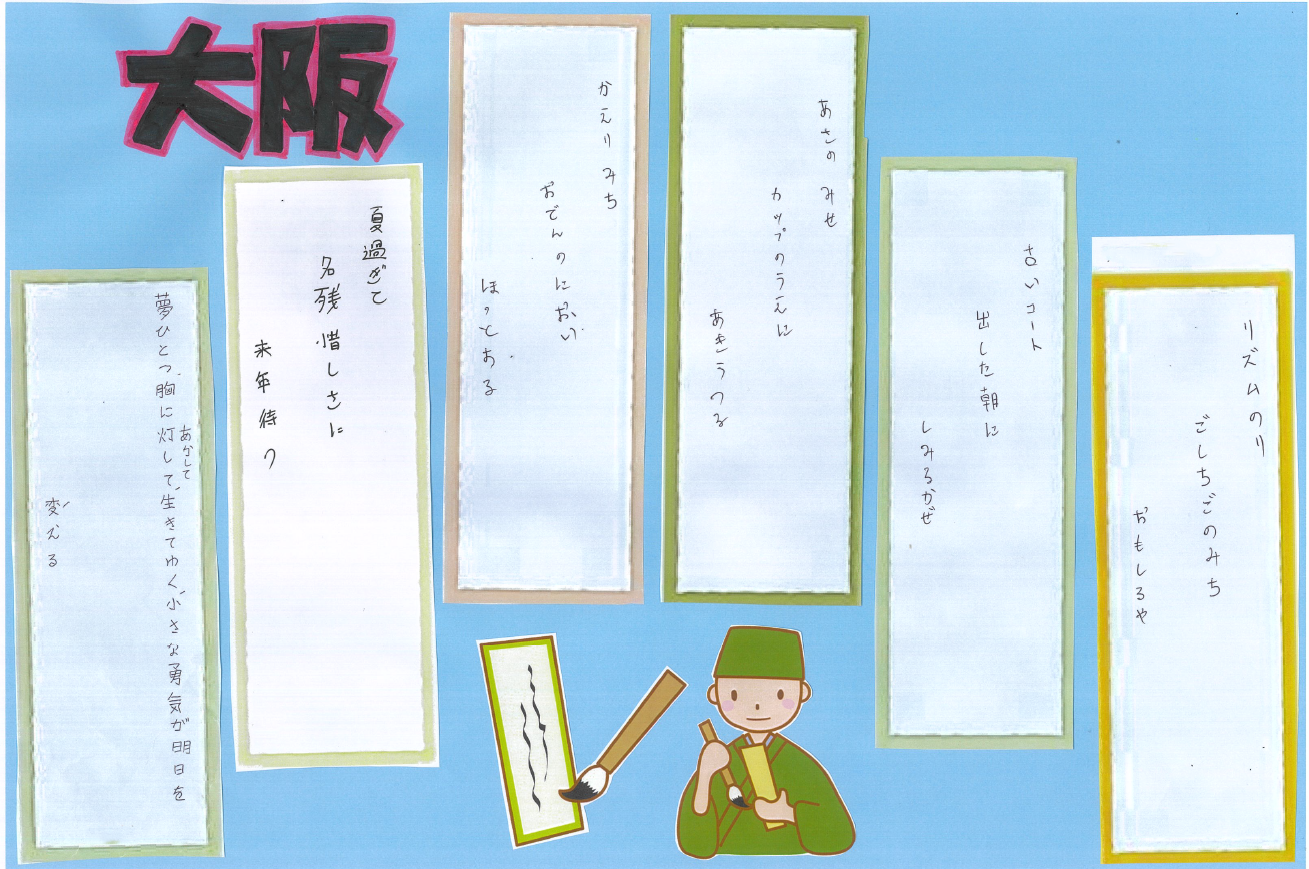 大阪
リズムのり
ごしちごのみち
おもしろや
古いコート
出した朝に
しみるかぜ
あさの みせ
カップのうえに
あきうつる
かえり みち
おでんのにおい
ほっとある
夏過ぎて
名残惜しさに
来年待つ
夢ひとつ、胸に灯して、生きてゆく、小さな勇気が明日を
あかして
変える